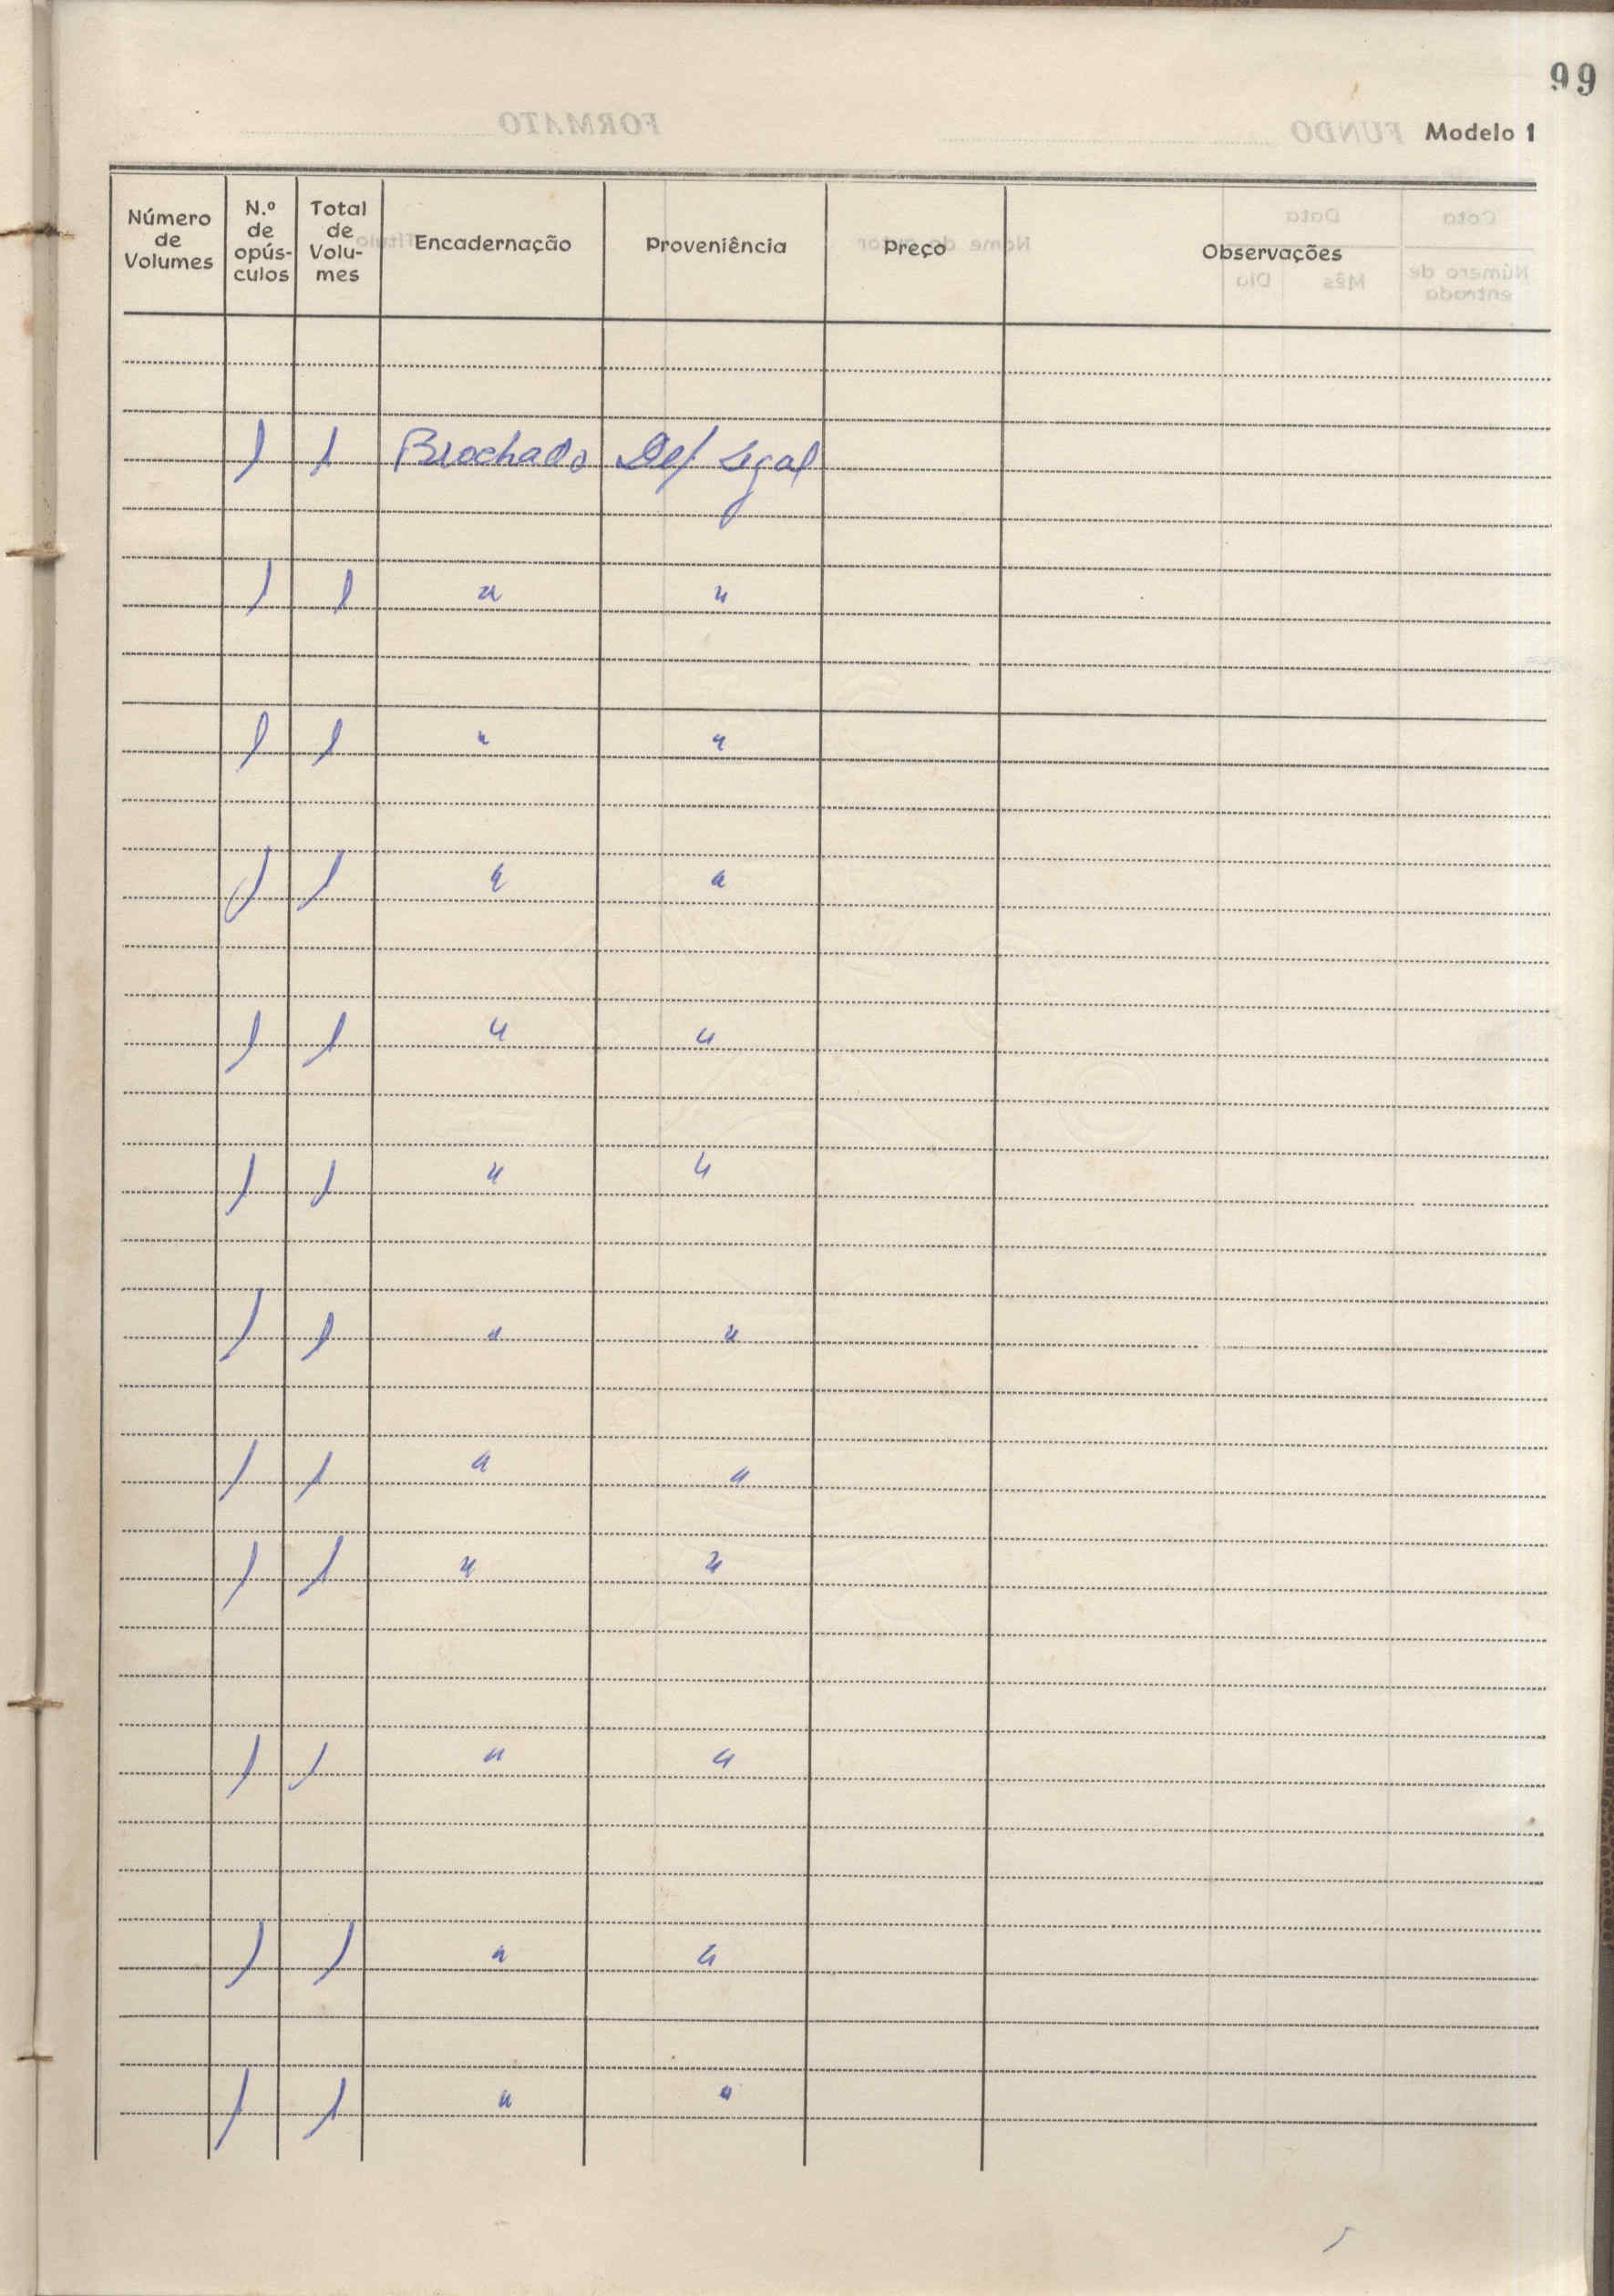 99
Modelo 1
Número de Volumes
N.º de opúsculos
Total de Volumes
Encadernação
Proveniência
Preço
Observações
1 1 Brochado Def Legal
1 1 " "
1 1 " "
1 1 " "
1 1 " "
1 1 " "
1 1 " "
1 1 " "
1 1 " "
1 1 " "
1 1 " "
1 1 " "